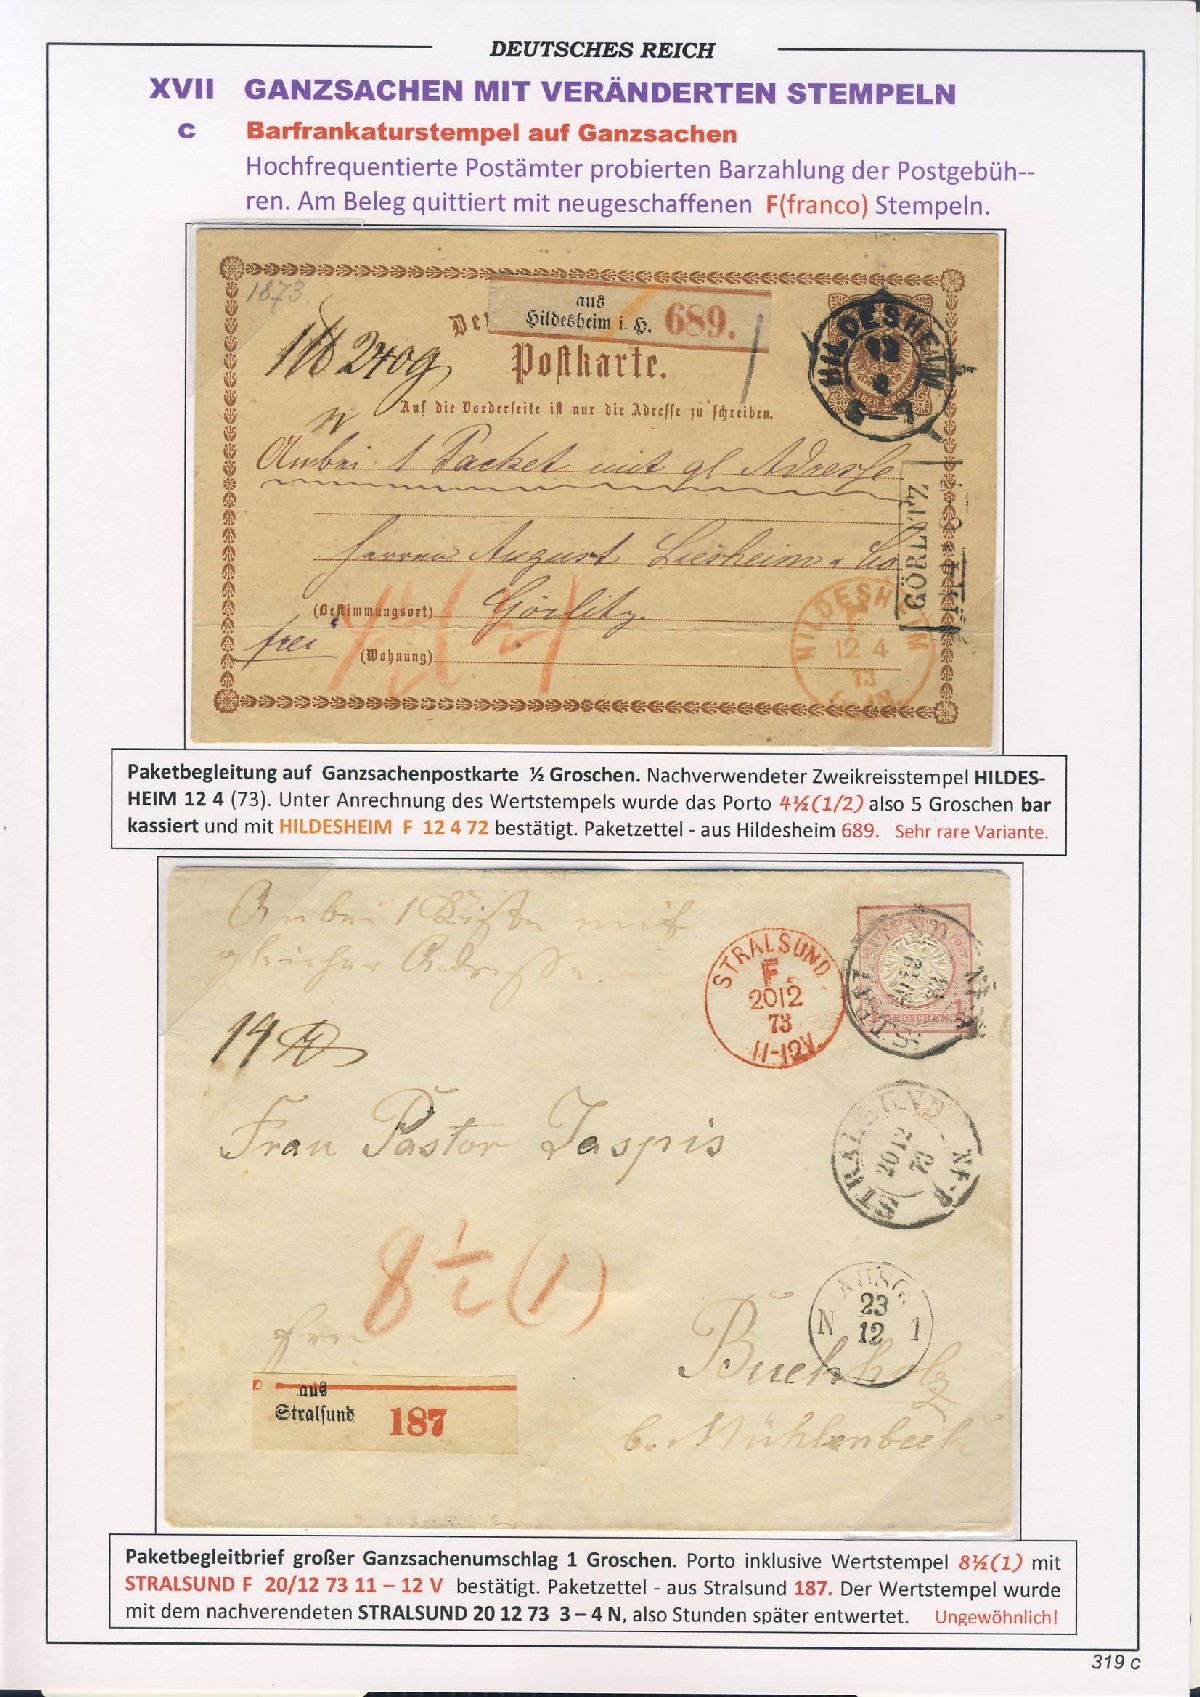 DEUTSCHES REICH
XVII GANZSACHEN MIT VERÄNDERTEN STEMPELN
C Barfrankaturstempel auf Ganzsachen
Hochfrequentierte Postämter probierten Barzahlung der Postgebüh--
ren. Am Beleg quittiert mit neugeschaffenen F(franco) Stempeln.
1873
aus
Hildesheim i. H. 689.
Postkarte.
Auf die Vorderseite ist nur die Adresse zu schreiben.
HILDESHEIM
12
4
6-7
Anbei 1 Packet mit gl Adresse
Herren August
GÖRLITZ
(Bestimmungsort) Görlitz.
frei
(Wohnung)
HILDESHEIM
F
12 4
73
Paketbegleitung auf Ganzsachenpostkarte ½ Groschen. Nachverwendeter Zweikreisstempel HILDES-
HEIM 12 4 (73). Unter Anrechnung des Wertstempels wurde das Porto 4½(1/2) also 5 Groschen bar
kassiert und mit HILDESHEIM F 12 4 72 bestätigt. Paketzettel - aus Hildesheim 689. Sehr rare Variante.
Anbei 1 Kiste mit
gleicher Adresse
STRALSUND
F.
2012
73
11-12V.
GROSCHEN
14
Frau Pastor Jaspis
STRALSUND
2012
73
8½(1)
AUSG.
N 23 1
12
frei
Buchholz
b. Mühlenbeck
aus
Stralsund 187
Paketbegleitbrief großer Ganzsachenumschlag 1 Groschen. Porto inklusive Wertstempel 8½(1) mit
STRALSUND F 20/12 73 11 – 12 V bestätigt. Paketzettel - aus Stralsund 187. Der Wertstempel wurde
mit dem nachverendeten STRALSUND 20 12 73 3 – 4 N, also Stunden später entwertet. Ungewöhnlich!
319 c